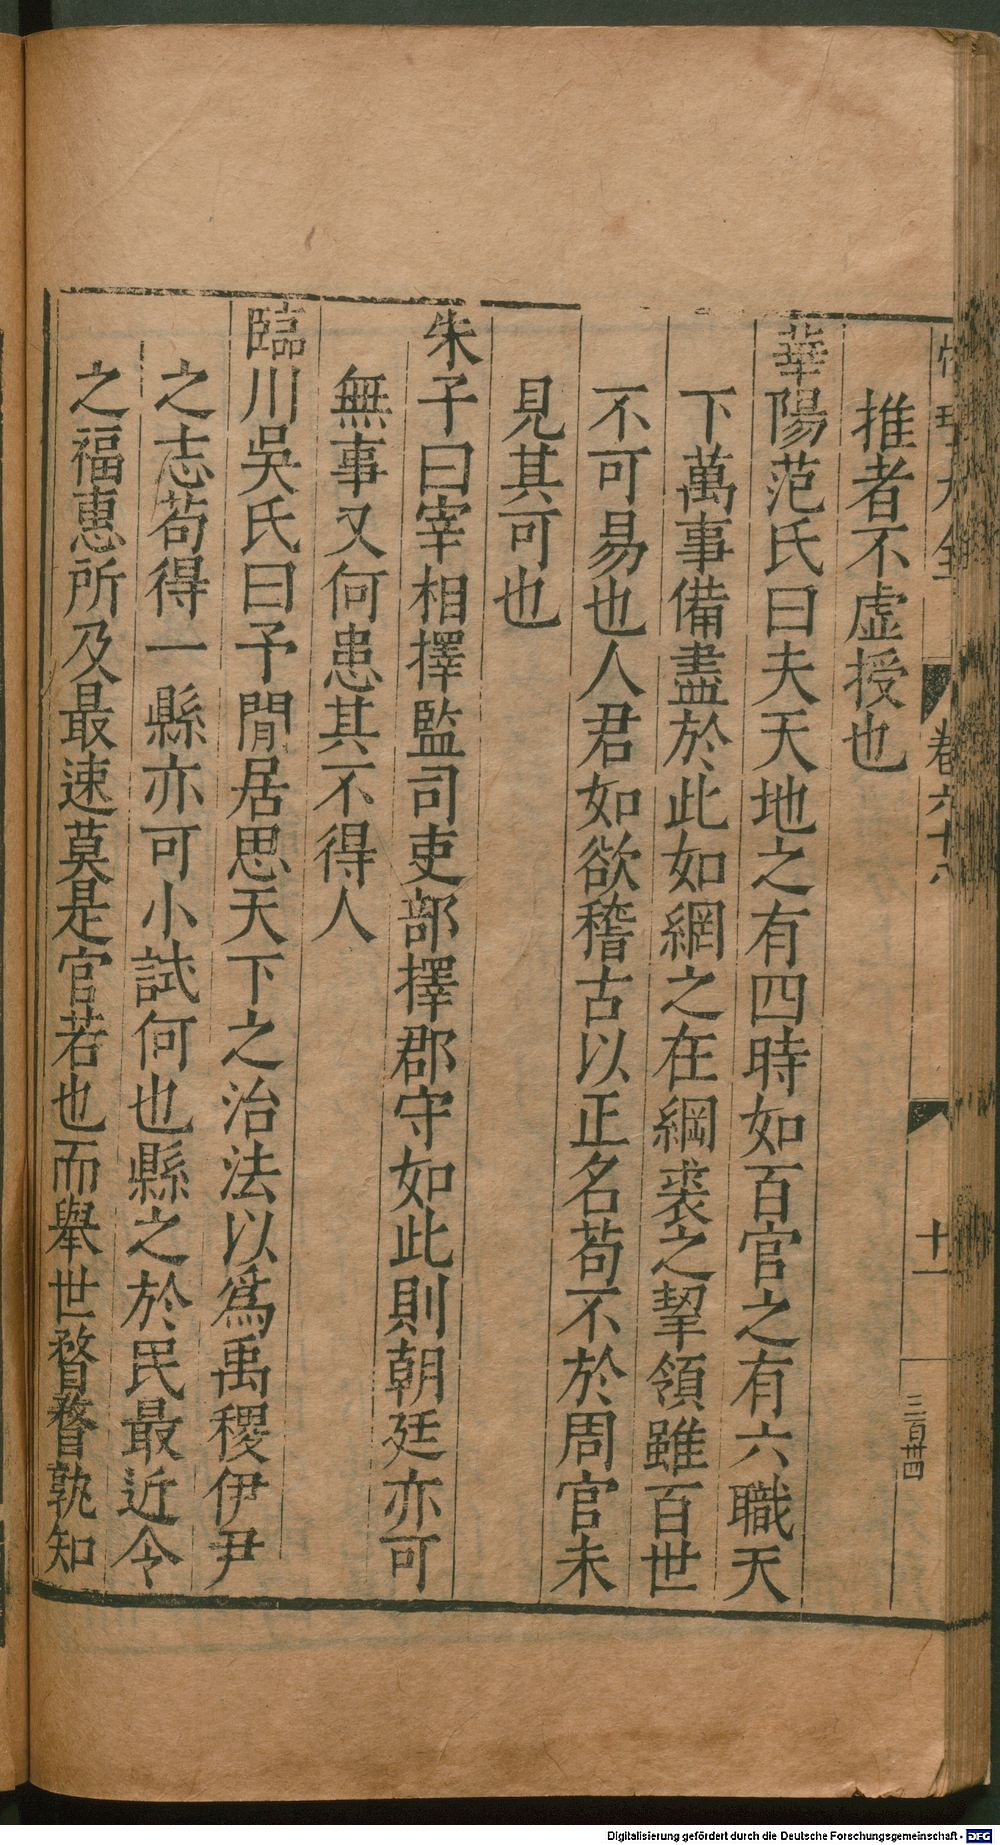 性理大全 卷六十八 十一 三百卅四
推者不虛授也
華陽范氏曰夫天地之有四時如百官之有六職天
下萬事備盡於此如網之在綱裘之挈領雖百世
不可易也人君如欲稽古以正名苟不於周官未
見其可也
朱子曰宰相擇監司吏部擇郡守如此則朝廷亦可
無事又何患其不得人
臨川吳氏曰予閒居思天下之治法以爲禹稷伊尹
之志苟得一縣亦可小試何也縣之於民最近令
之福惠所及最速莫是官若也而舉世瞀瞀孰知
Digitalisierung gefördert durch die Deutsche Forschungsgemeinschaft - DFG